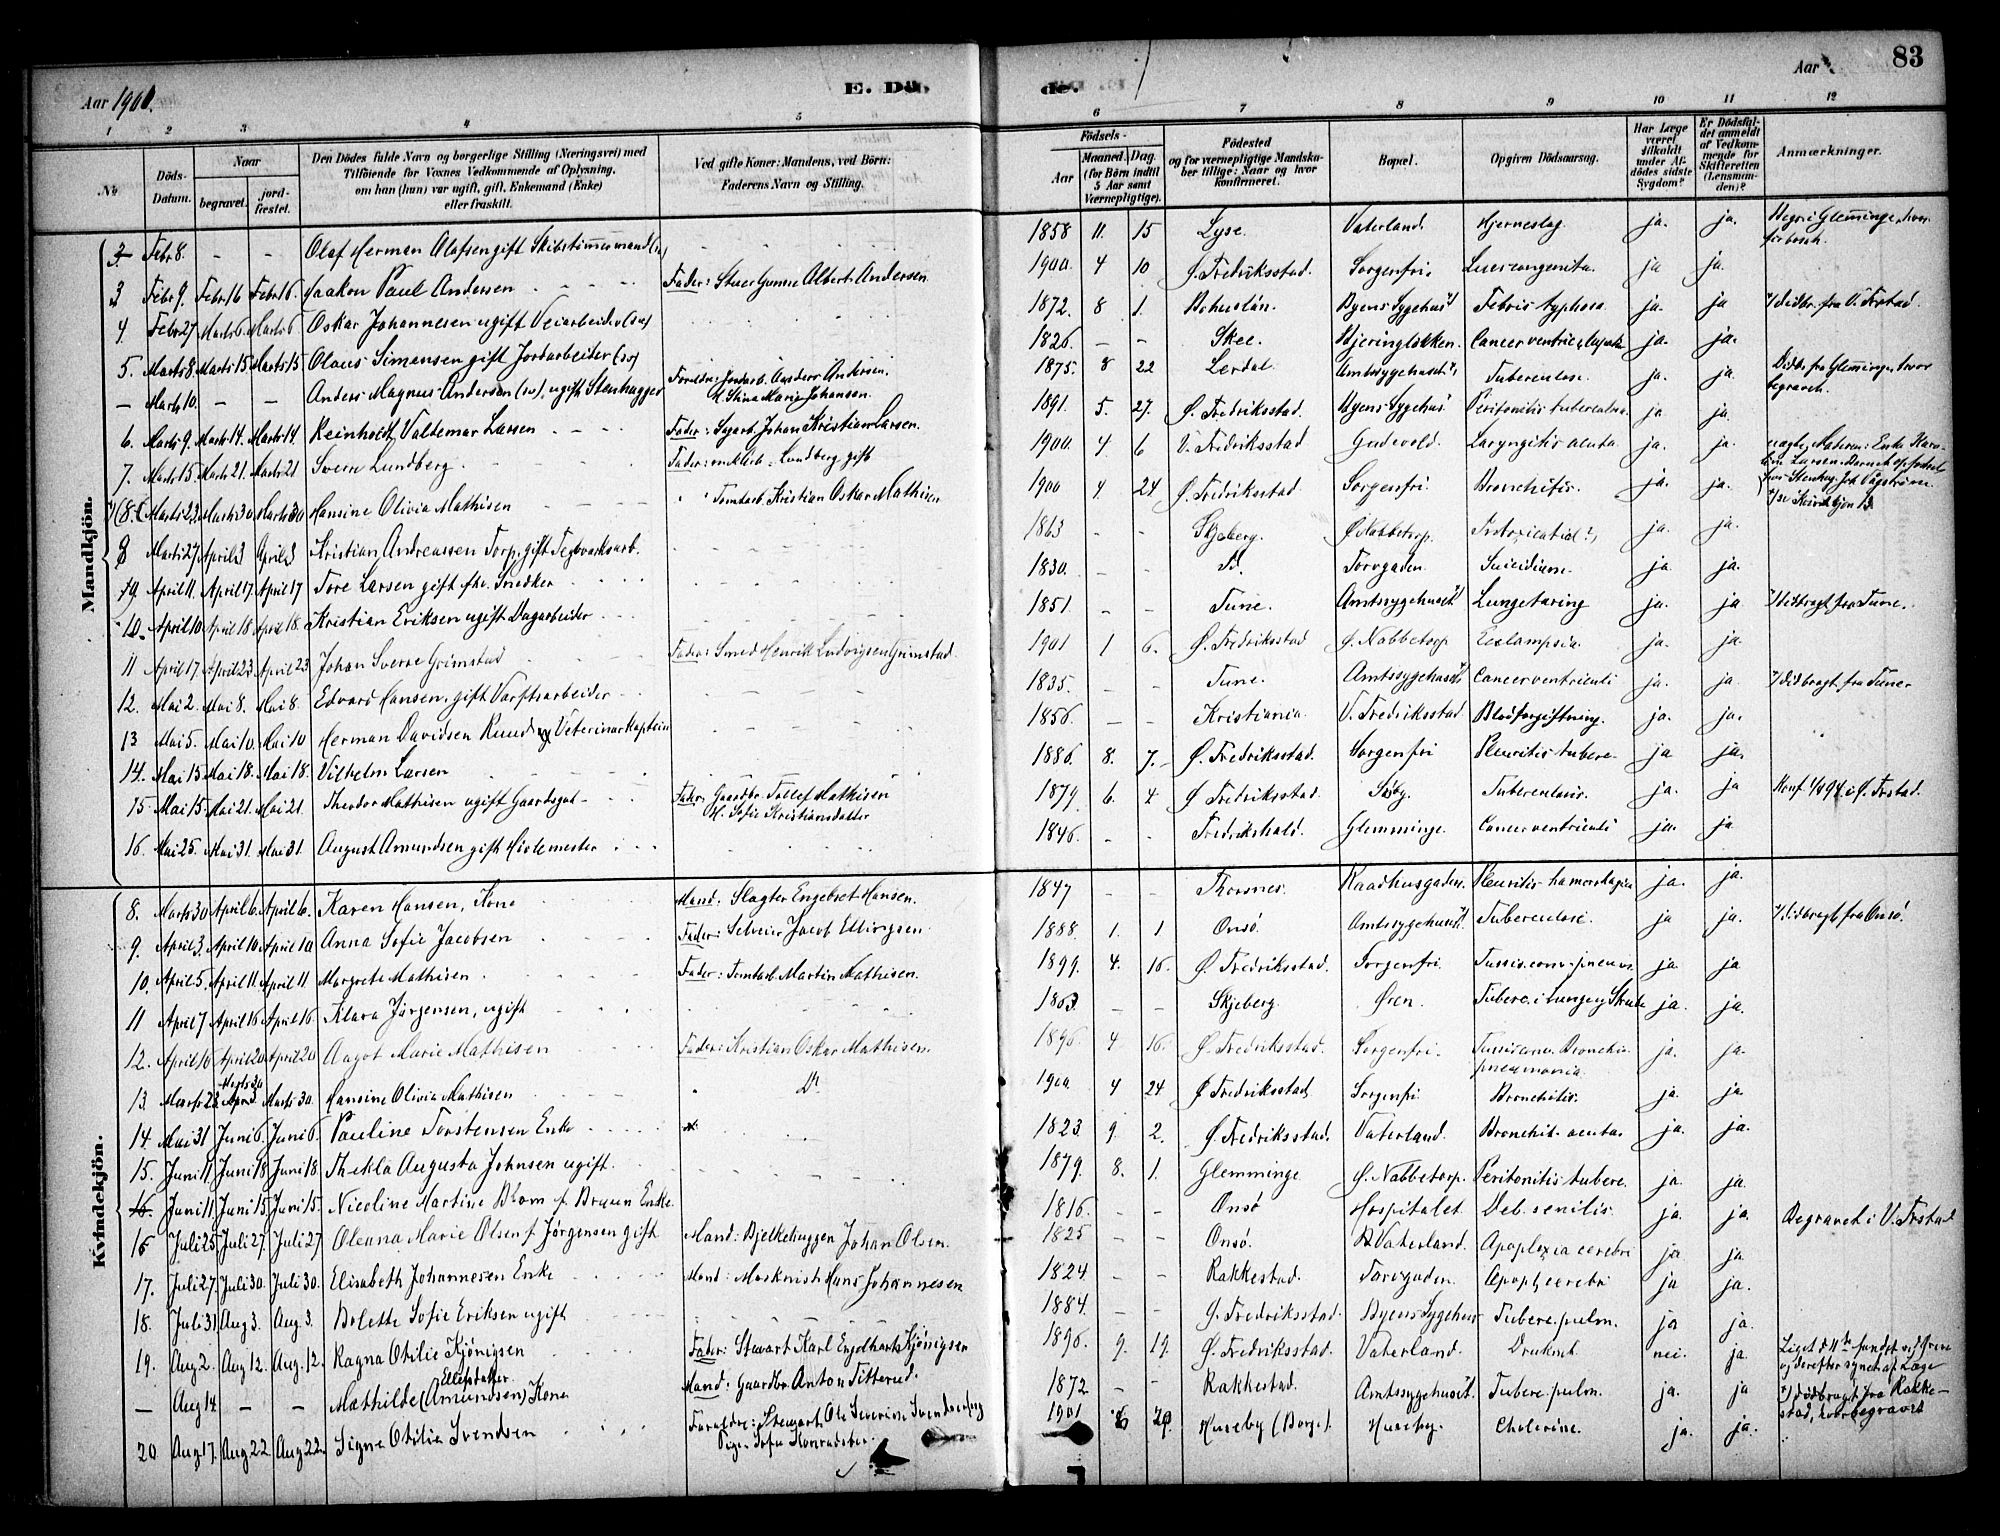 Aar 1901.
E. Dö
de.
Aar
83
1 2 3 4 5 6 7 8 9 10 11 12
No
Döds-Datum.
Naar
begravet.
jord-fæstet.
Den Dödes fulde Navn og borgerlige Stilling (Næringsvei) med
Tilföiende for Voxnes Vedkommende af Oplysning,
om han (hun) var ugift, gift, Enkemand (Enke)
eller fraskilt.
Ved gifte Koner: Mandens, ved Börn:
Faderens Navn og Stilling.
Födsels-
Aar
Maaned. Dag.
(for Börn indtil
5 Aar samt
Værnepligtige).
Födested
og for værnepligtige Mandskaber tillige: Naar og hvor
konfirmeret.
Bopæl.
Opgiven Dödsaarsag.
Har Læge været tilkaldt under Afdödes sidste Sygdom?
Er Dödsfaldet anmeldt af Vedkommende for Skifteretten (Lensmanden)?
Anmærkninger.
Mandkjön.
3. Febr 8. – – Olaf Herman Olafsen gift Skibstimmermand 1858 11. 15 Lyse. Vaterland. Hjerneslag ja. ja.
3 Febr 9. Febr 16 Febr 16. Haakon Paul Andersen Fader: Albert Andersen 1900. 4 10 Ø. Fredriksstad. Sorgenfri. ja ja.
4 Febr 27 Marts 6 Marts 6 Oskar Johannesen ugift Veiarbeider 1872. 8 1. Bohuslän. Byens Sygehus Febris typhosa ja. ja dödbr. fra V. Frstad.
5. Marts 8. Marts 15 Marts 15 Olaus Simensen gift Jordarbeider 1826. – – Skee. Bjeringløkken. Cancer ventriculi ja. ja.
– Marts 10. – – Anders Magnus Andersen ugift Stenhugger Forældre: Jordarb. Anders Andersen. Stina Marie Johansen 1875. 8 22 Lerdal. Amtssygehuset Tuberculose. ja. ja. Dödbr. fra Glemminge, hvor begravet.
6. Marts 9. Marts 14. Marts 14. Reinholdt Valdemar Larsen Fader: Sagarb. Johan Kristian Larsen. 1891. 5. 27. Ø. Fredriksstad. Byens Sygehus Peritonitis tuberculosa ja ja.
7. Marts 15 Marts 21. Marts 21 Sverre Lundberg. Fader: Lundberg gift 1900. 4 6 V. Fredriksstad Gudevold. Laryngitis acuta. ja. ja.
(8.) Marts 23. Marts 30 Marts 30 Hansine Olivia Mathisen Tomtarb. Kristian Oskar Mathisen 1900 4 24 Ø. Fredriksstad. Sorgenfri. Bronchitis. ja. ja. Kvindekjön 13.
8 Marts 27 April 3 April 3 Kristian Andreassen Torp, gift Teglværksarb. 1863 – – Skjeberg. Ø. Nabbetorp. ja. ja.
9. April 11. April 17. April 17 Tore Larsen gift Snedker 1830. – – Torvgaden. Suicidium. ja ja.
10. April 10 April 18. April 18. Kristian Eriksen ugift Dagarbeider 1851. – – Tune. Amtssygehuset Lungetæring ja. ja dödbragt fra Tune.
11 April 17. April 23 April 23 Johan Sverre Grimstad Fader: Smed Henrik Ludvigsen Grimstad. 1901 1 6. Ø. Fredriksstad Ø. Nabbetorp Eclampsia. ja. ja.
12. Mai 2. Mai 8. Mai 8. Edvard Hansen, gift Værftsarbeider 1835. – – Tune. Amtssygehuset Cancer ventriculi ja. ja. dödbragt fra Tune
13 Mai 5. Mai 10. Mai 10 Herman Davidsen Ruud Veterinærkaptein 1856. – – Kristiania. V. Fredriksstad. Blodforgiftning. ja. ja.
14. Mai 13 Mai 18. Mai 18. Vilhelm Larsen 1886. 8. 7. Ø. Fredriksstad. Sorgenfri Pleuritis tuberc. ja ja.
15 Mai 15. Mai 21. Mai 21. Theodor Mathisen ugift Gaardsgut Fader: Gaardbr. Tollef Mathisen H. Sofie Kristiansdatter 1879. 6. 4 Ø Fredriksstad. Tuberculosis. ja. ja Konf. 1894 i Ø. Frstad.
16. Mai 25. Mai 31. Mai 31. August Amundsen gift Hiulemester 1846. – – Fredrikshald. Glemminge. Cancer ventriculi ja. ja.
Kvindekjön.
8. Marts 30 April 6. April 6. Karen Hansen, Kone Mand: Slagter Engebret Hansen. 1847 – – Thorsnes. Raadhusgaden. Pleuritis hæmorrhagica ja. ja.
9. April 3. April 10 April 10 Anna Sofie Jacobsen Fader: Selveier Jacob Ellingsen 1888. 1. 1 Onsö. Amtssygehuset. Tuberculose. ja ja. dödbragt fra Onsö.
10. April 5. April 11. April 11. Margrete Mathisen. Fader: Tomtarb. Martin Mathisen. 1899. 4. 16. Ø. Fredriksstad. Sorgenfri. Tussis conv. pneum. ja. ja
11 April 7 April 16 April 16. Klara Jørgensen, ugift 1863. – – Skjeberg. Øren. Tuberc. i Lunge ja. ja.
12. April 10 April 20 April 20 Aagot Marie Mathisen Fader: Kristian Oskar Mathisen. 1896. 4 16. Ø. Fredriksstad. Sorgenfri. Tussis conv. Bronchio pneumonia. ja. ja.
13. Marts 23 Marts 30 April Marts 30. Hansine Olivia Mathisen Do 1900. 4 24 Ø Fredriksstad Sorgenfri Bronchitis. ja. ja.
14. Mai 31 Juni 6. Juni 6. Pauline Torstensen Enke 1823. 9. 2. Ø. Fredriksstad. Vaterland. Bronchit. acuta ja. ja.
15. Juni 11. Juni 18 Juni 18. Thekla Augusta Johnsen ugift. 1879. 8. 1. Glemminge Ø. Nabbetorp. Peritonitis tuberc. ja. ja.
16. Juni 11. Juni 15 Juni 15. Nicoline Martine Blom f. Bruun Enke. 1816. – – Onsö Hospitalet. Deb. senilis. ja. ja. Begravet i V. Frstad
16 Juli 25 Juli 27. Juli 27 Oleana Marie Olsen f. Jørgensen gift Mand: Bjelkehugger Johan Olsen. 1825 – – Onsö. Vaterland. Apoplexia cerebri ja ja.
17. Juli 27. Juli 30. Juli 30. Elisabeth Johannesen Enke Mand: Maskinist Hans Johannesen 1824 – – Rakkestad. Torvgaden. Apopl. cerebri ja ja.
18. Juli 31 Aug 3. Aug 3. Bolette Sofie Eriksen ugift 1884. – – Ø. Fredriksstad. Byens Sygehus Tuberc. pulm. ja ja.
19. Aug 2. Aug 12. Aug. 12. Ragna Otilie Kjönigsen Fader: Stuart Karl Engelhart Kjönigsen 1896. 9. 19. Ø. Fredriksstad. Vaterland. Druknet. nei. ja. Liget d. 4de fundet ved Øren og derefter synet af Læge
– Aug 14. – – Mathilde (Amundsen) Ellefsdatter Kone Mand: Gaardbr. Anton Titterud. 1872 – – Rakkestad. Amtssygehuset. Tuberc. pulm. ja. ja dödbragt fra Rakkestad, hvor begravet
20 Aug 17. Aug 22. Aug 22. Signe Otilie Svendsen Forældre: Stewart Ole Severin Svendsen Pige Sofie 1901 6 29. Huseby (Borge). Huseby. Cholerine. ja. ja.